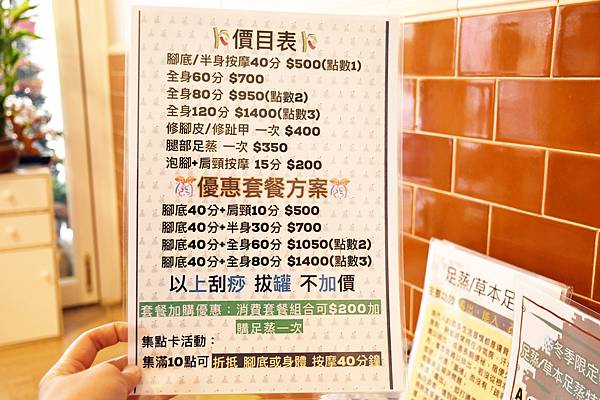 價目表
腳底/半身按摩40分 $500(點數1)
全身60分 $700
全身80分 $950(點數2)
全身120分 $1400(點數3)
修腳皮/修趾甲 一次 $400
腿部足蒸 一次 $350
泡腳+肩頸按摩 15分 $200
優惠套餐方案
腳底40分+肩頸10分 $500
腳底40分+半身30分 $700
腳底40分+全身60分 $1050(點數2)
腳底40分+全身80分 $1400(點數3)
以上刮痧 拔罐 不加價
套餐加購優惠：消費套餐組合可$200加
購足蒸一次
集點卡活動：
集滿10點可 折抵 腳底或身體 按摩40分鐘
足蒸/草本足
冬季限定
足蒸/草本足蒸特